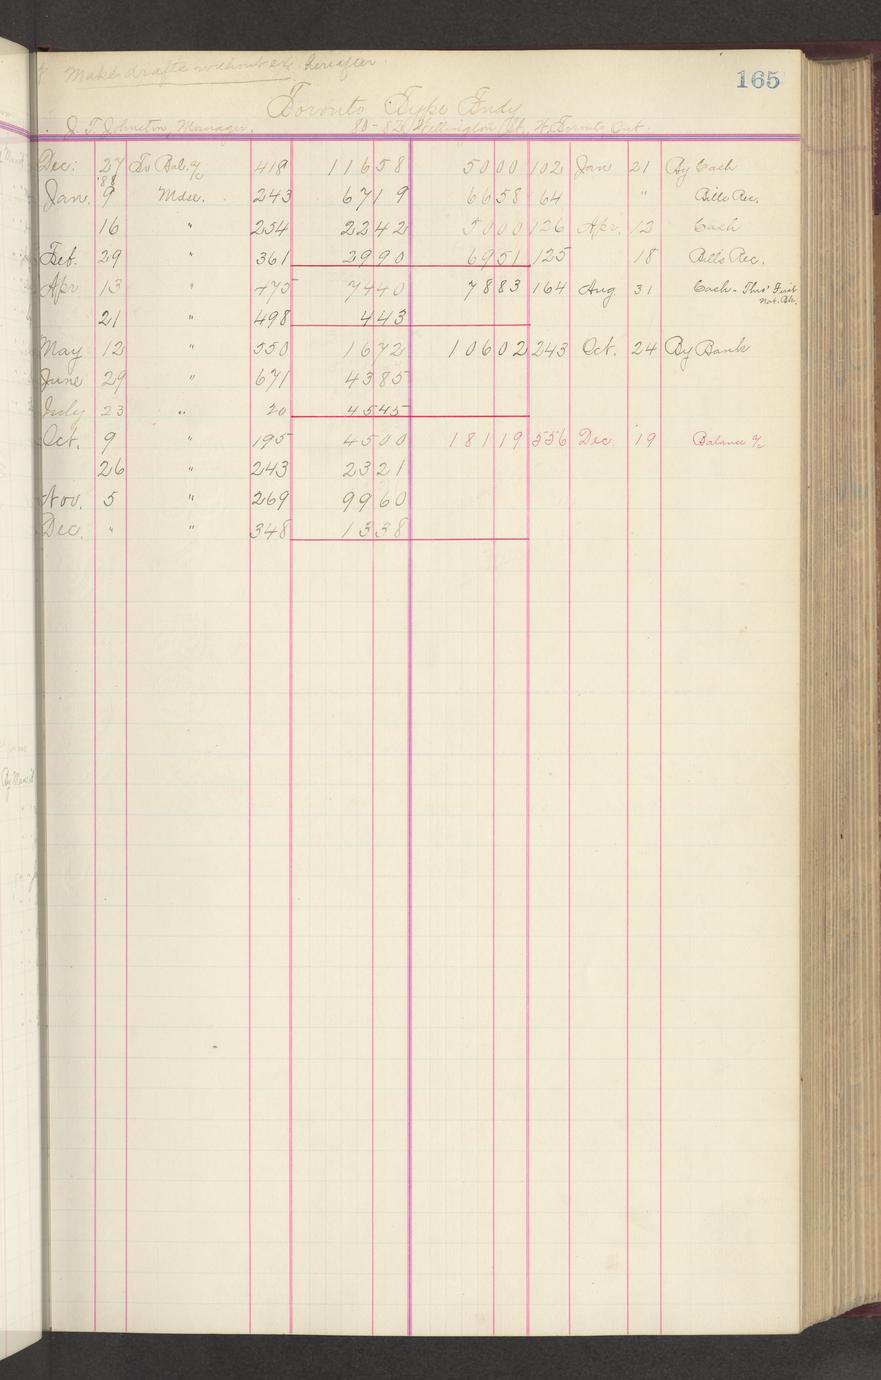 Make drafts without ex. hereafter.
165
Toronto Type Fndy
J. T. Johnston, Manager. 80-82 Wellington St. W. Toronto Ont.
Dec. 27 To Bal. a/c 418 116 58 50 00 102 Jan 21 By Cash
'88
Jan. 9 Mdse. 243 67 19 66 58 64 " Bills Rec.
16 " 254 22 42 50 00 126 Apr. 12 Cash
Feb. 29 " 361 29 90 69 51 125 18 Bills Rec.
Apr 13 " 475 74 40 78 83 164 Aug 31 Cash - Thro' First
Nat. Bk.
21 " 498 4 43
May 12 " 550 16 72 106 02 243 Oct. 24 By Bank
June 29 " 671 43 85
July 23 " 20 45 45
Oct. 9 " 195 45 00 181 19 556 Dec. 19 Balance a/c
26 " 243 23 21
Nov. 5 " 269 99 60
Dec. " " 348 13 38